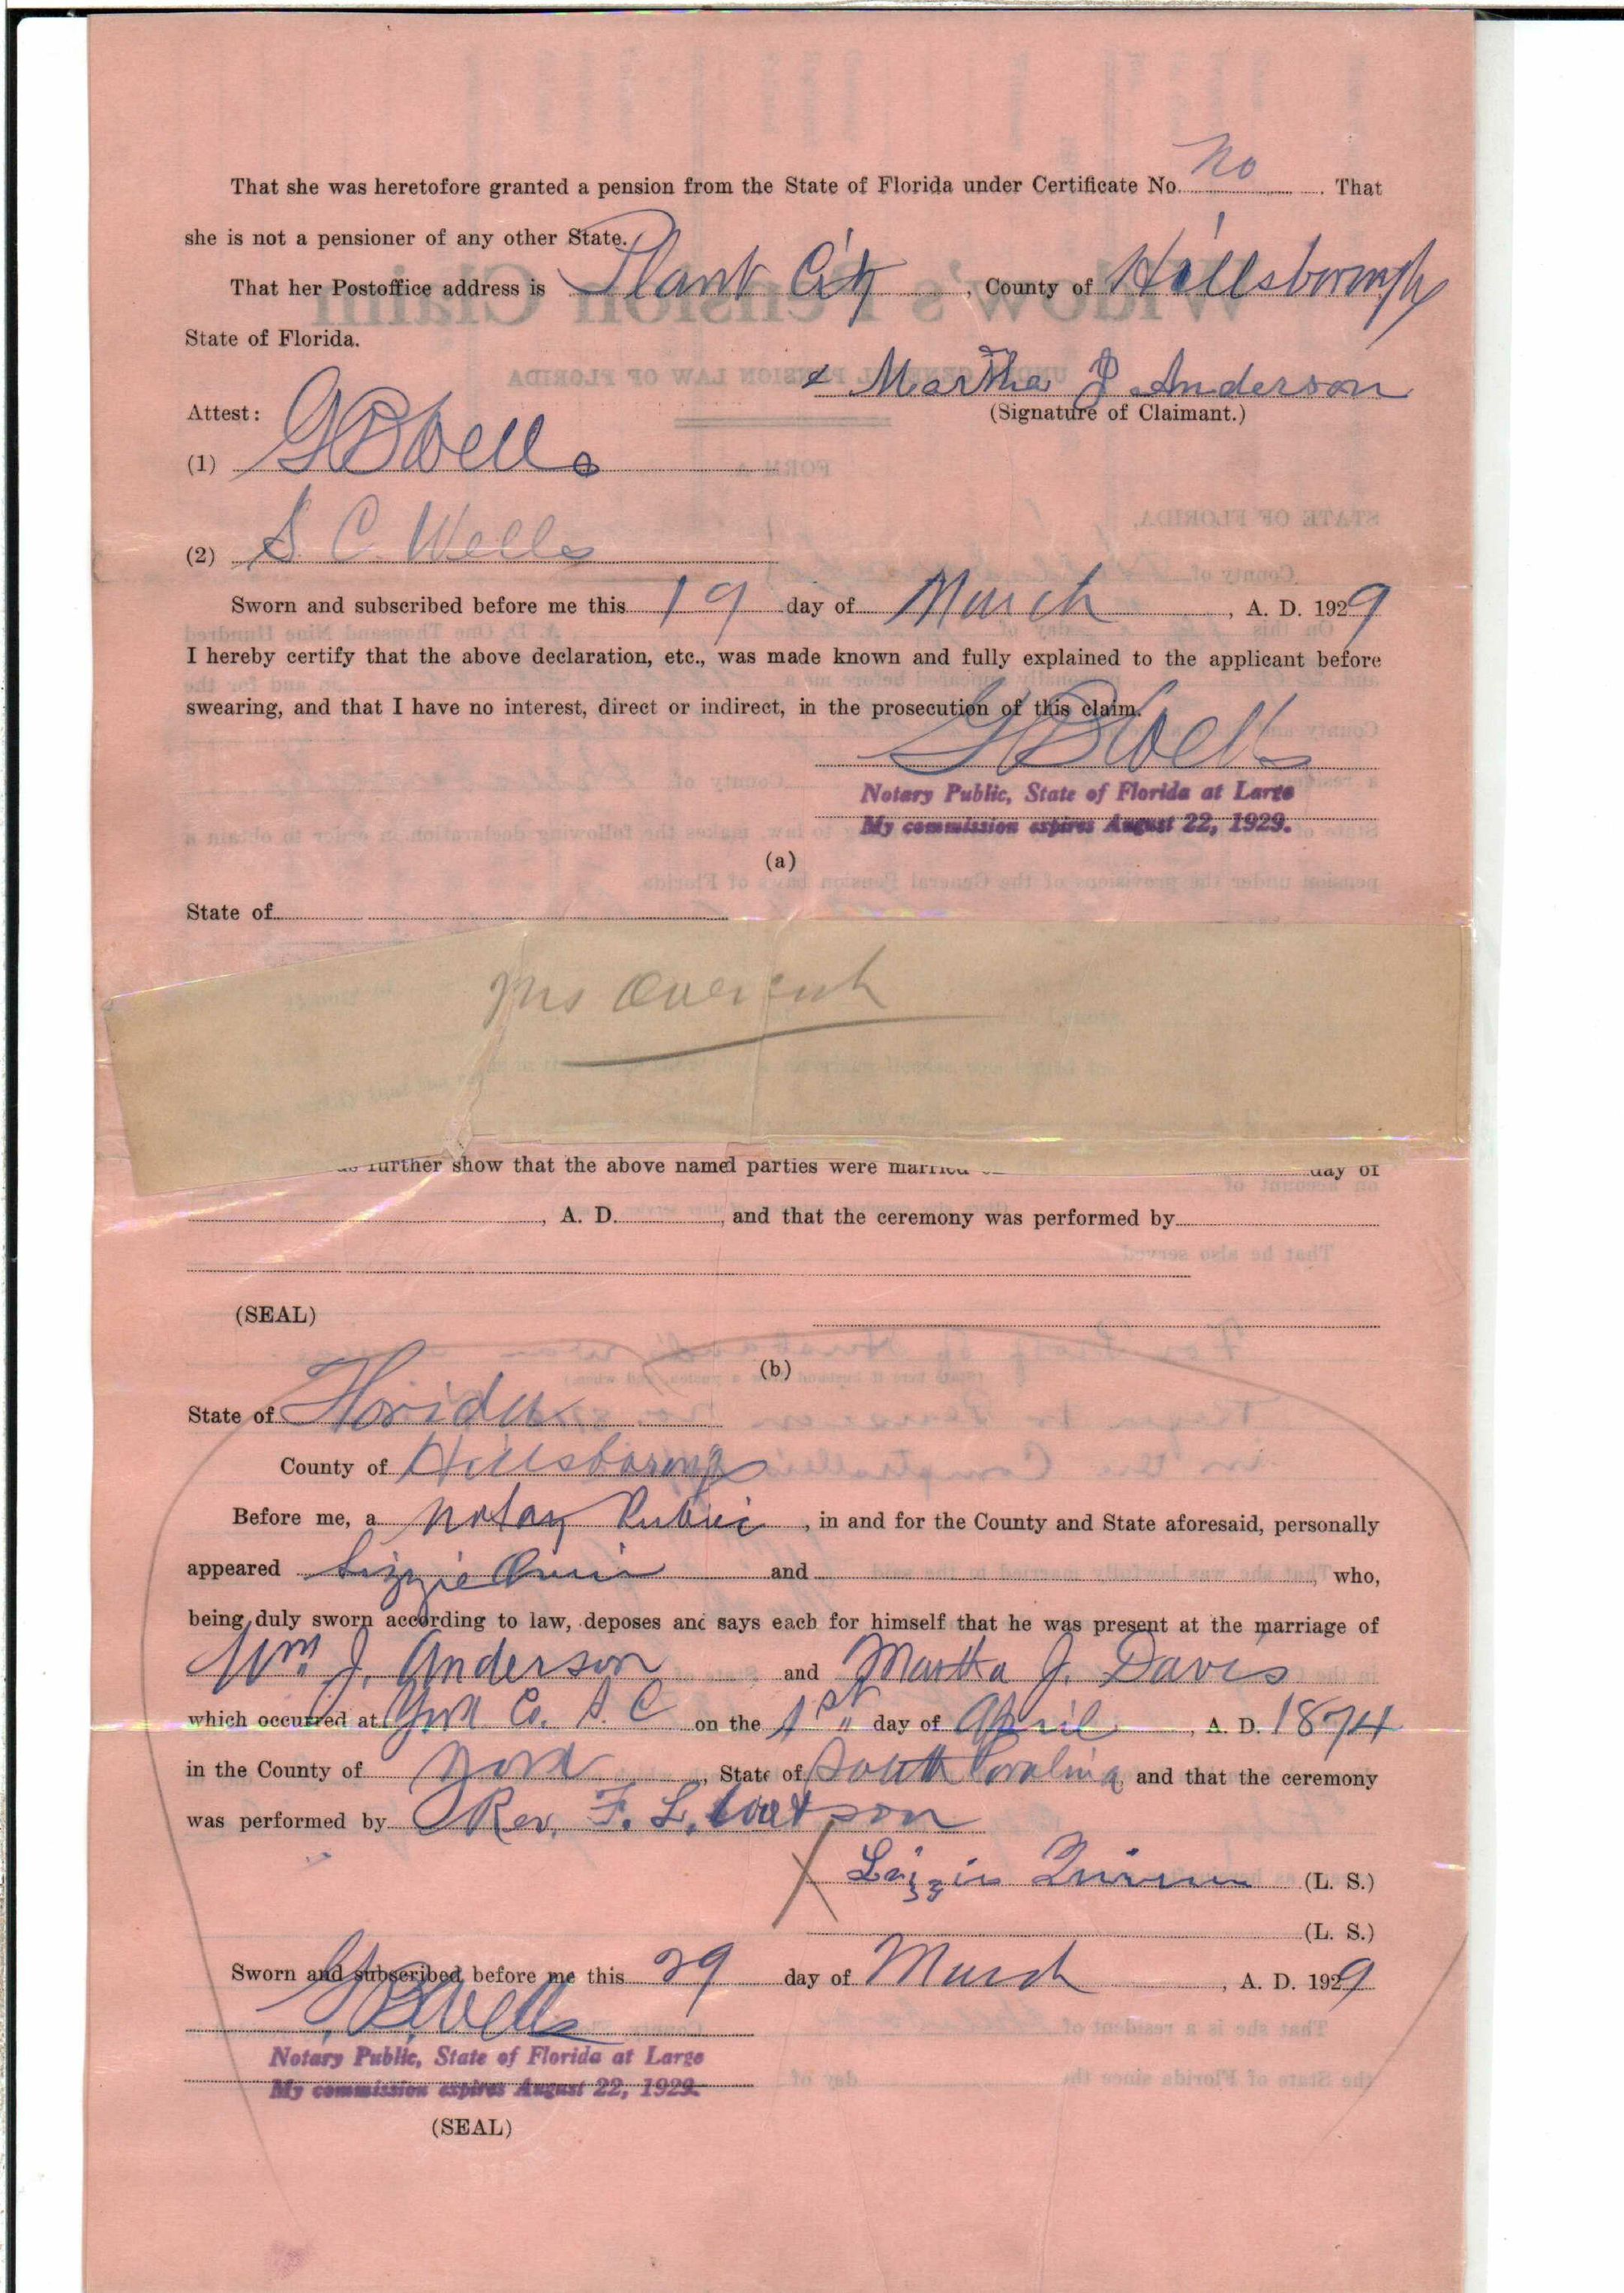 That she was heretofore granted a pension from the State of Florida under Certificate No. no. That
she is not a pensioner of any other State.
That her Postoffice address is Plant City, County of Hillsborough
State of Florida.
x Martha J Anderson
(Signature of Claimant.)
Attest:
(1) G B Wells
(2) S. C. Wells
Sworn and subscribed before me this 19 day of March, A. D. 1929
I hereby certify that the above declaration, etc., was made known and fully explained to the applicant before
swearing, and that I have no interest, direct or indirect, in the prosecution of this claim.
G B Wells
Notary Public, State of Florida at Large
My commission expires August 22, 1929.
(a)
State of
Mrs
further show that the above named parties were married day of
, A. D. , and that the ceremony was performed by
(SEAL)
(b)
State of Florida
County of Hillsborough
Before me, a Notary Public, in and for the County and State aforesaid, personally
appeared Lizzie and , who,
being duly sworn according to law, deposes and says each for himself that he was present at the marriage of
Wm. J. Anderson and Martha J. Davis
which occurred at York Co. S. C on the 1st day of April, A. D. 1874
in the County of York, State of South Carolina, and that the ceremony
was performed by Rev. F. L. Watson
X Lizzie (L. S.)
(L. S.)
Sworn and subscribed before me this 29 day of March, A. D. 1929
G. B. Wells
Notary Public, State of Florida at Large
My commission expires August 22, 1929.
(SEAL)